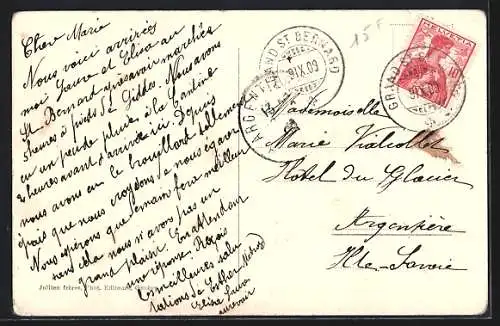 Chère Marie
Nous voici arrivées
moi Laure et Elisa au
St. Bernard après avoir marchées
5 heures à pieds St Gilles. Nous avons
eu un peu de pluie à la Cantine
2 heures avant d'arriver ici. Depuis
nous avons eu le brouillard tellement
épais que nous croyons de nous égarer
Nous espérons que demain fera meilleur
sans cela nous n'avons pas un
grand plaisir. En attendant
une réponse. Reçois
les meilleures salu
tations de Esther
Elise Laure
au revoir
Jullien frères, Phot. Editeurs, Genève
15 F
GRAND ST BERNARD
IX.09
ARGENTIÈRE
HELVETIA
10
GRAND ST
IX.09
Mademoiselle
Marie Vialcollet
Hôtel du Glacier
Argentière
Hte-Savoie